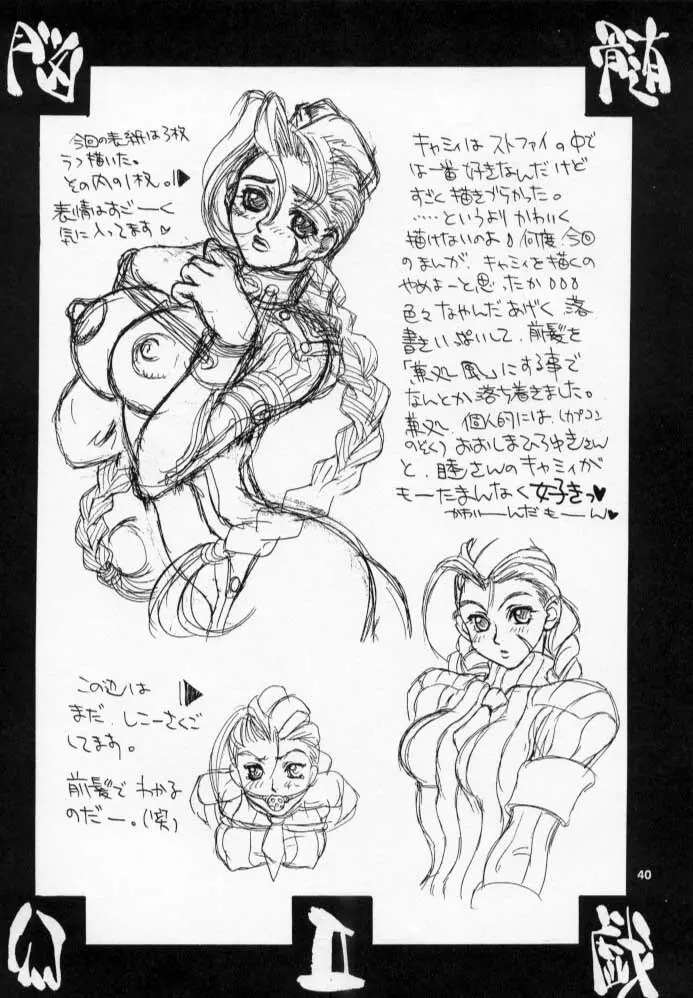 脳
髄
今回の表紙は3枚
うつ描いた。
その内の1枚。
表情はすごーく
気に入ってます♥
キャミィはストファイの中で
は一番好きなんだけど
すごく描きづらかった。
……というよりかわいく
描けないのよ 何度、今回
のまんが、キャミィを描くの
やめよーと思ったか
色々なやんだあげく落
書きいっぱいして、前髪を
「 風」にする事で
なんとか落ち着きました。
個人的には、(カプコン
のぞく) おおしまひろゆきさん
と、睦さんのキャミィが
もーたまんなく好きっ♥
かわいーんだもーん♥
この辺は
まだ、しこーさくご
してます。
前髪でわかる
のだー。(笑)
40
幻
II
戯